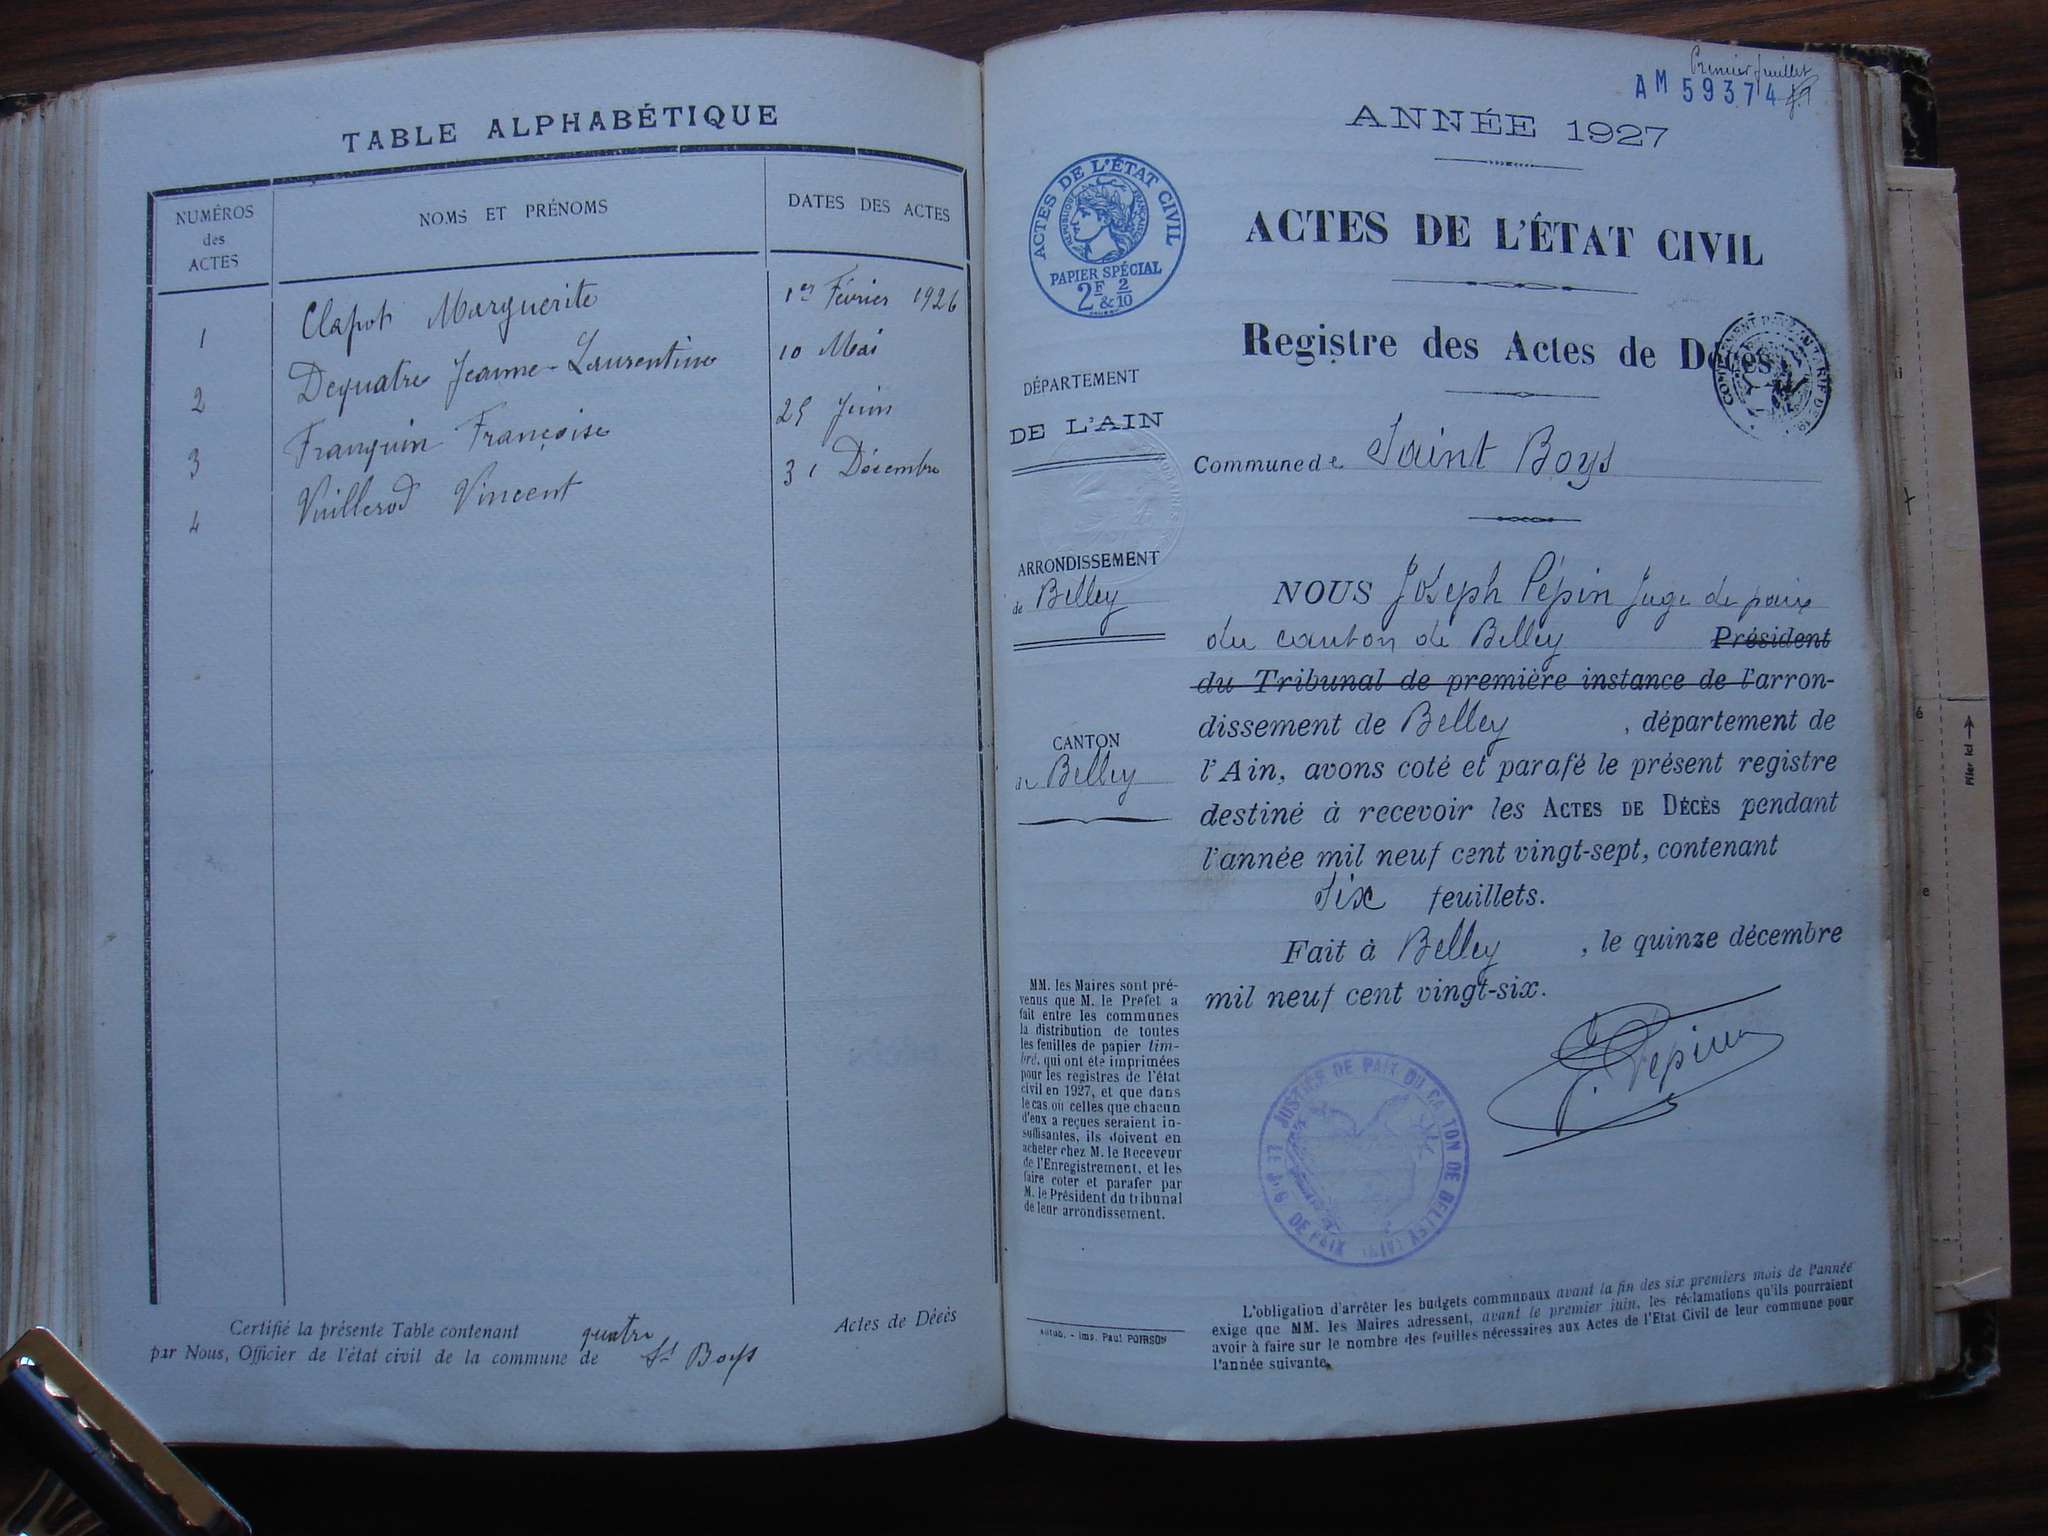 TABLE ALPHABÉTIQUE
NUMÉROS des ACTES
NOMS ET PRÉNOMS
DATES DES ACTES
1 Clapot Marguerite 1er Février 1926
2 Dequatre Jeanne-Laurentine 10 Mai
3 Franquin Françoise 25 Juin
4 Vuillerod Vincent 31 Décembre
Certifié la présente Table contenant quatre Actes de Décès
par Nous, Officier de l'état civil de la commune de St Boys
Premier feuillet
AM 59374
ANNÉE 1927
ACTES DE L'ÉTAT CIVIL
RÉPUBLIQUE FRANÇAISE
PAPIER SPÉCIAL
2F & 2/10
ACTES DE L'ÉTAT CIVIL
Registre des Actes de Décès
DÉPARTEMENT
DE L'AIN
Commune de Saint Boys
ARRONDISSEMENT
de Belley
CANTON
de Belley
NOUS Joseph Pépin Juge de paix
du canton de Belley Président
du Tribunal de première instance de l'arron-
dissement de Belley, département de
l'Ain, avons coté et parafé le présent registre
destiné à recevoir les ACTES DE DÉCÈS pendant
l'année mil neuf cent vingt-sept, contenant
Six feuillets.
Fait à Belley, le quinze décembre
mil neuf cent vingt-six.
J. Pépin
JUSTICE DE PAIX DU CANTON DE BELLEY (AIN)
DE PAIX
MM. les Maires sont pré-
venus que M. le Préfet a
fait entre les communes
la distribution de toutes
les feuilles de papier tim-
bré, qui ont été imprimées
pour les registres de l'état
civil en 1927, et que dans
le cas où celles que chacun
d'eux a reçues seraient in-
suffisantes, ils doivent en
acheter chez M. le Receveur
de l'Enregistrement, et les
faire coter et parafer par
M. le Président du tribunal
de leur arrondissement.
Imp. Paul POIRSON
L'obligation d'arrêter les budgets communaux avant la fin des six premiers mois de l'année
exige que MM. les Maires adressent, avant le premier juin, les réclamations qu'ils pourraient
avoir à faire sur le nombre des feuilles nécessaires aux Actes de l'Etat Civil de leur commune pour
l'année suivante.
Plier ici